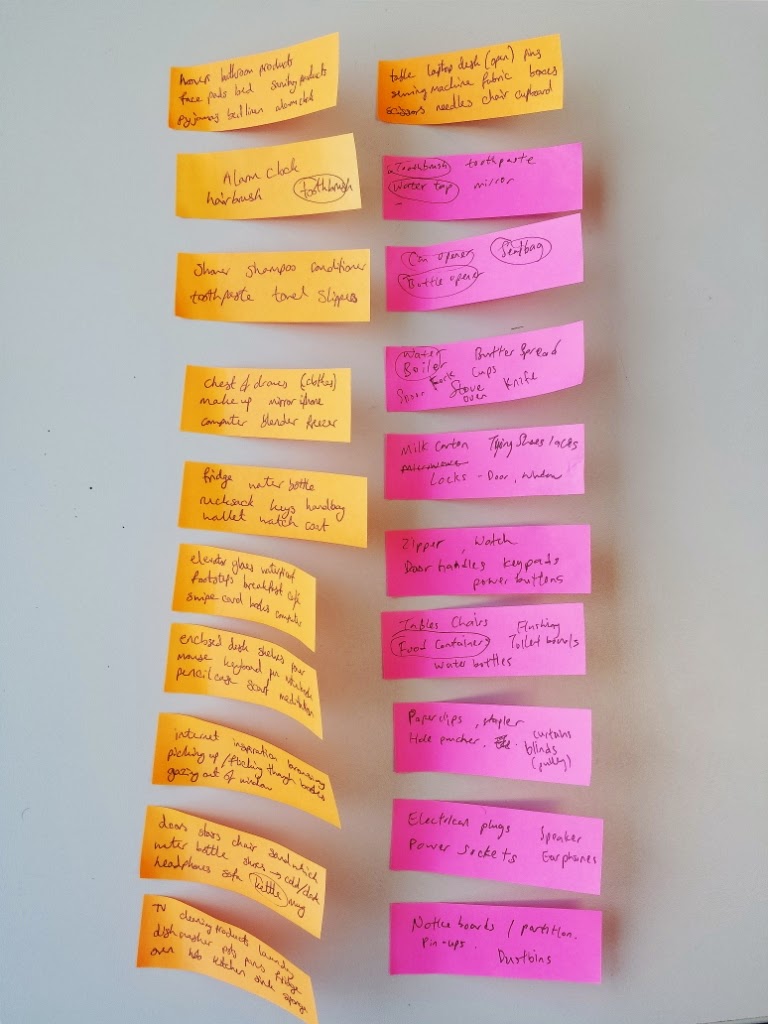 bathroom products
face pads bed sanitary products
pyjamas bed linen alarm clock
Alarm clock
hairbrush toothbrush
shower shampoo conditioner
toothpaste towel slippers
chest of draws (clothes)
make up mirror iphone
computer blender freezer
fridge water bottle
rucksack keys handbag
wallet watch coat
elevator glass
footsteps breakfast
swipe card books computer
enclosed desk shelves
mouse keyboard pen notebook
pencil case scarf meditation
internet inspiration browsing
picking up / flicking though books
gazing out of window
doors stairs chair sandwich
water bottle shoes → cold/dark
headphones sofa kettle mug
TV cleaning products laundry
dishwasher pots pans fridge
oven hob kitchen sink sponge
table laptop desk (open) pins
sewing machine fabric boxes
scissors needles chair cupboard
Toothbrush toothpaste
Water tap mirror
Can opener
Bottle opener
Water Butter Spread
Boiler Fork Cups
Spoon Stove Knife
oven
Milk carton Tying Shoes laces
Locks - Door, Window
Zipper, Watch
Door handles keypads
power buttons
Tables Chairs Flushing
Food Containers Toilet bowls
Water bottles
Paper clips, stapler
Hole puncher. curtains
blinds
(pulley)
Electrical plugs Speaker
Power sockets Earphones
Notice boards / partition.
Pin-ups.
Dustbins